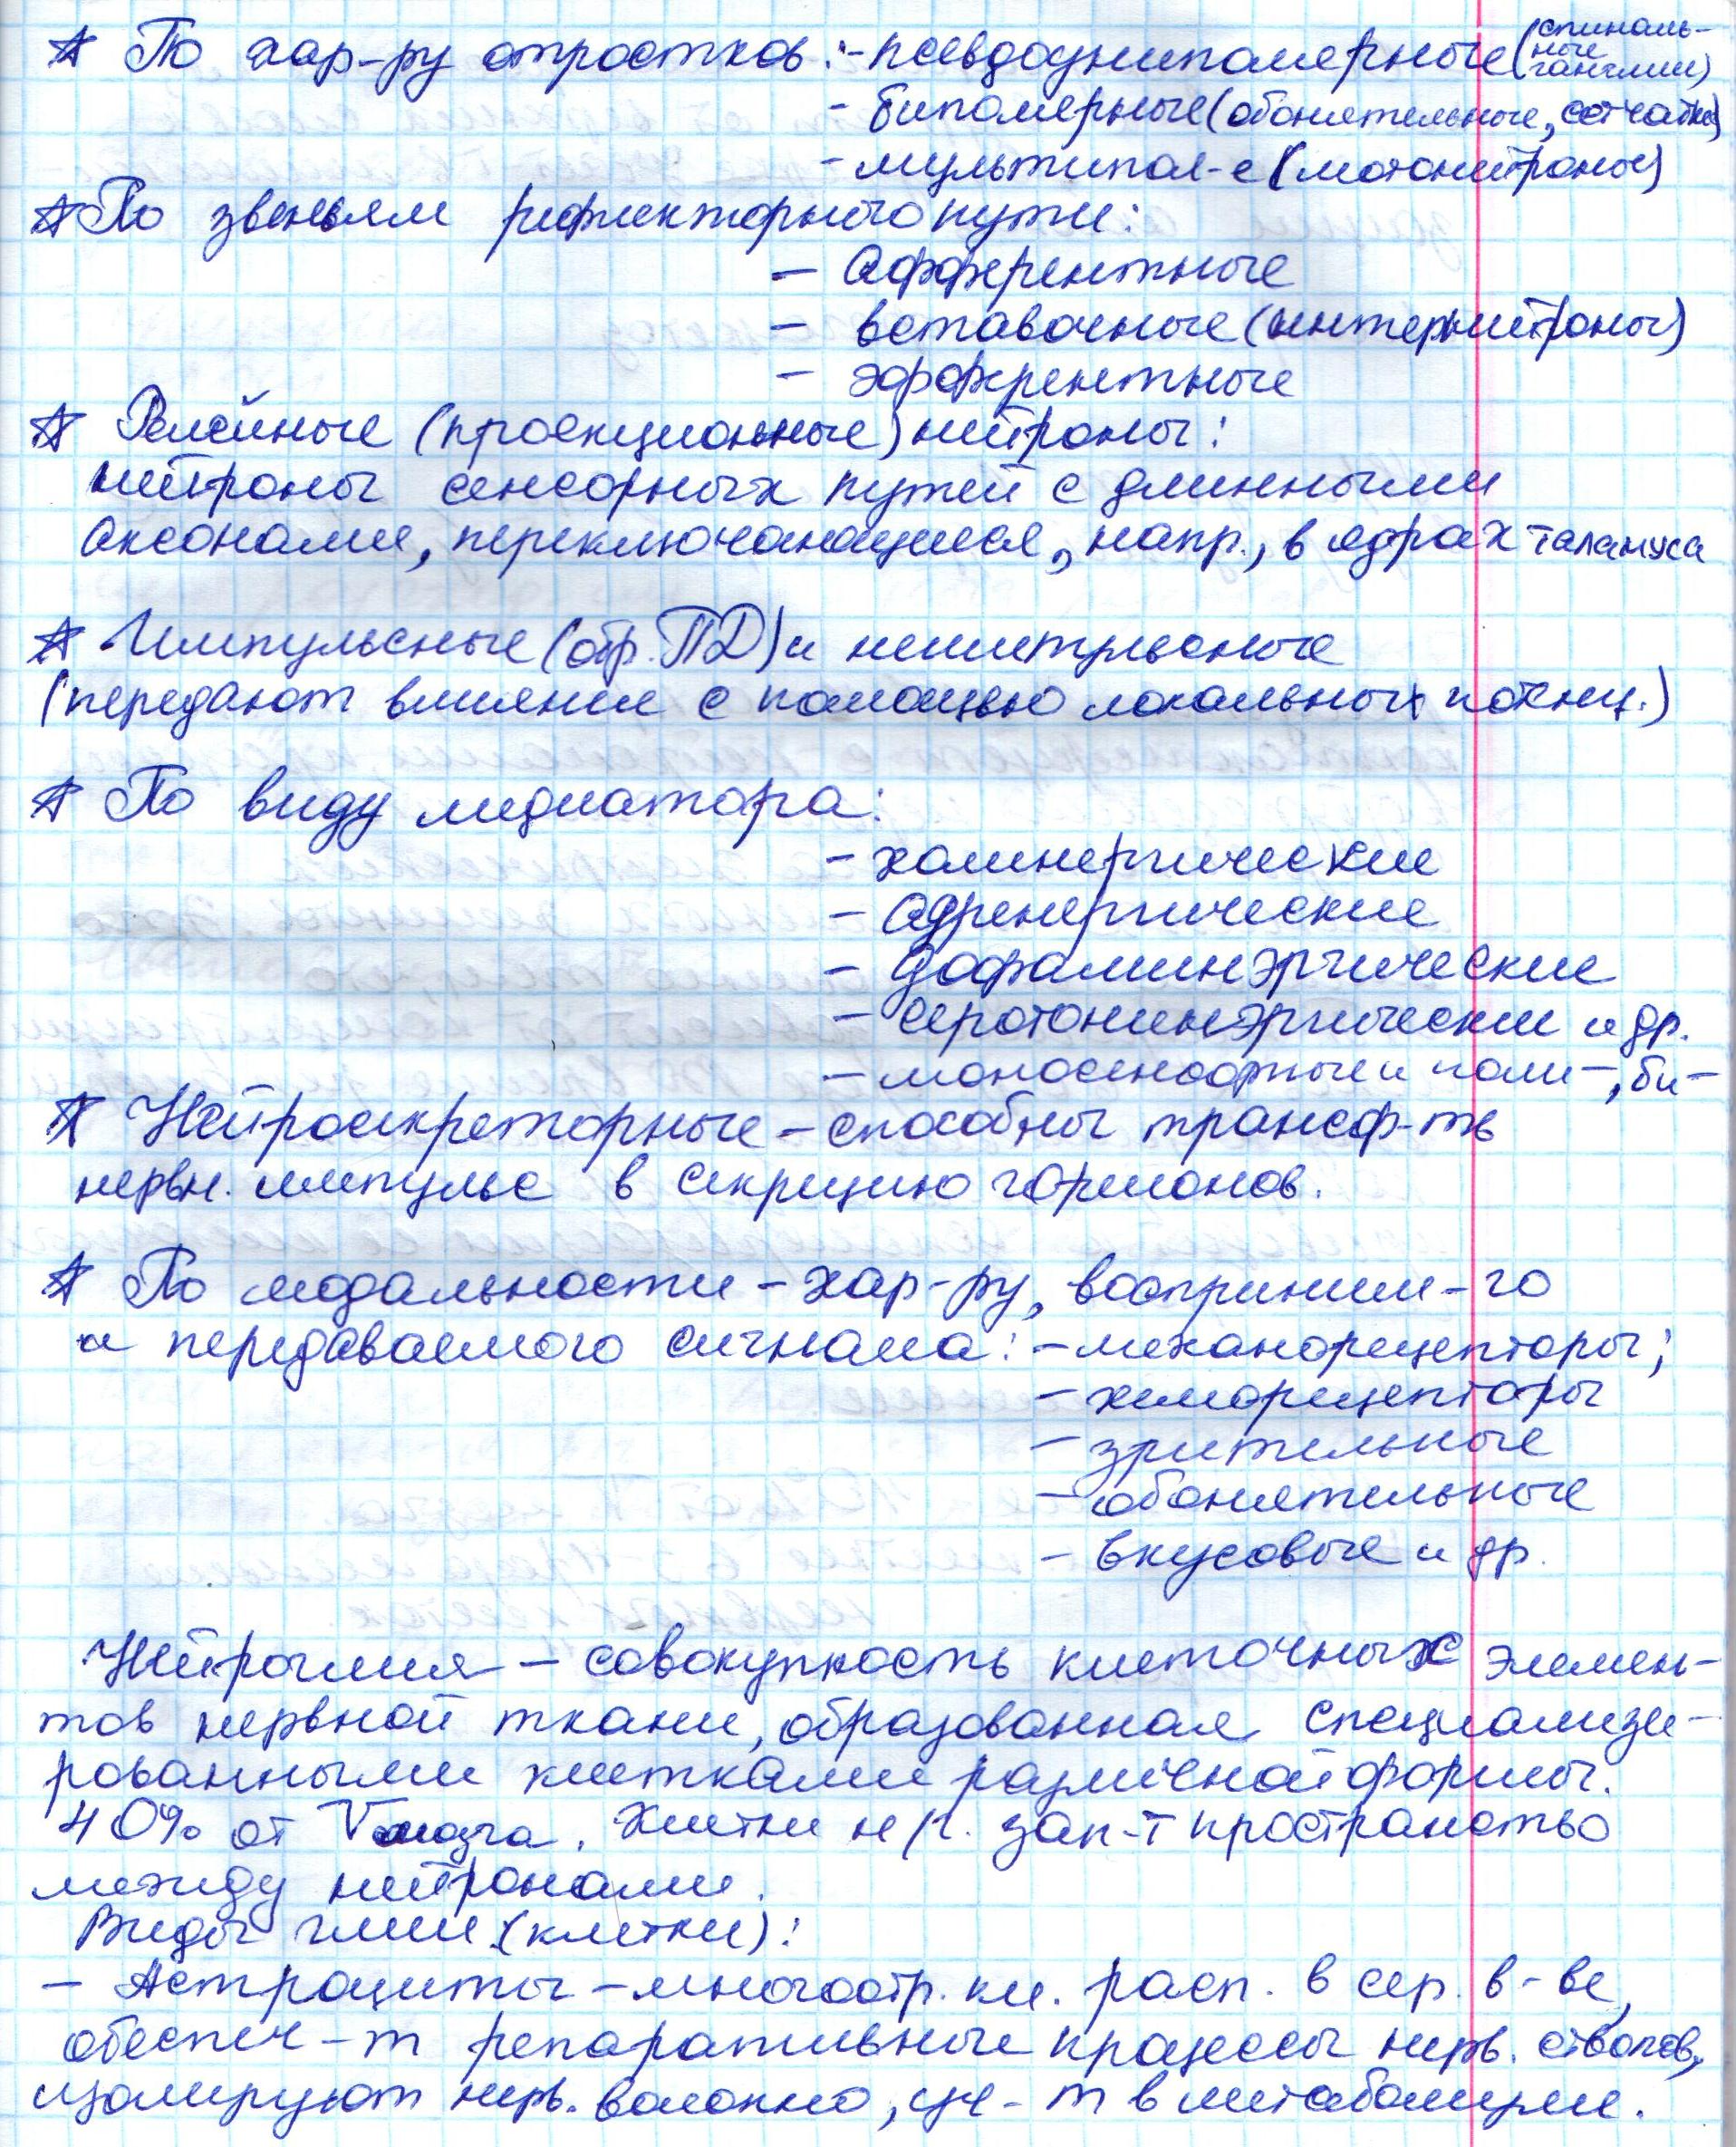 ☆ По хар-ру отростков: - псевдоуниполярные (спиналь-
ные
ганглии)
- биполярные (обонятельные, сетчатка)
- мультипол-е (мотонейроны)
☆ По звеньям рефлекторного пути:
- афферентные
- вставочные (интернейроны)
- эфферентные
☆ Релейные (проекционные) нейроны:
нейроны сенсорных путей с длинными
аксонами, переключающиеся, напр., в ядрах таламуса
☆ Импульсные (обр. ПД) и неимпульсные
(передают влияния с помощью локальных потенц.)
☆ По виду медиатора:
- холинергические
- адренергические
- дофаминэргические
- серотонинэргические и др.
- моносенсорные и поли-, би-
☆ Нейросекреторные - способны трансф-ть
нервн. импульс в секрецию гормонов.
☆ По модальности - хар-ру, восприним-го
и передаваемого сигнала: - механорецепторы;
- хеморецепторы
- зрительные
- обонятельные
- вкусовые и др.
Нейроглия - совокупность клеточных элемен-
тов нервной ткани, образованная специализи-
рованными клетками различной формы.
40% от V мозга. Клетки н/г. зап-т пространство
между нейронами.
Виды глии (клетки):
- Астроциты - многоотр. кл. расп. в сер. в-ве,
обеспеч-т репаративные процессы нерв. стволов,
изолируют нерв. волокно, уч-т в метаболизме.